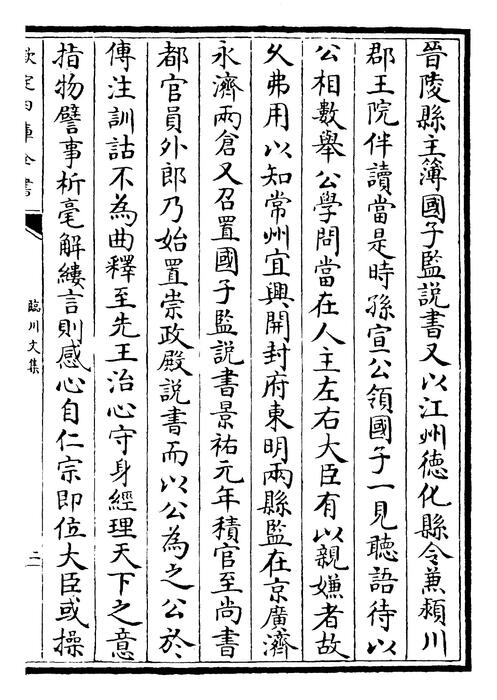 晉陵縣主簿國子監説書又以江州徳化縣令兼潁川
郡王院伴讀當是時孫宣公領國子一見聽語待以
公相數舉公學問當在人主左右大臣有以親嫌者故
乆弗用以知常州宜興開封府東明兩縣監在京廣濟
永濟兩倉又召置國子監説書景祐元年積官至尚書
都官員外郎乃始置崇政殿説書而以公為之公於
傳注訓詁不為曲釋至先王治心守身經理天下之意
指物譬事析毫解縷言則感心自仁宗即位大臣或操
欽定四庫全書
臨川文集
二